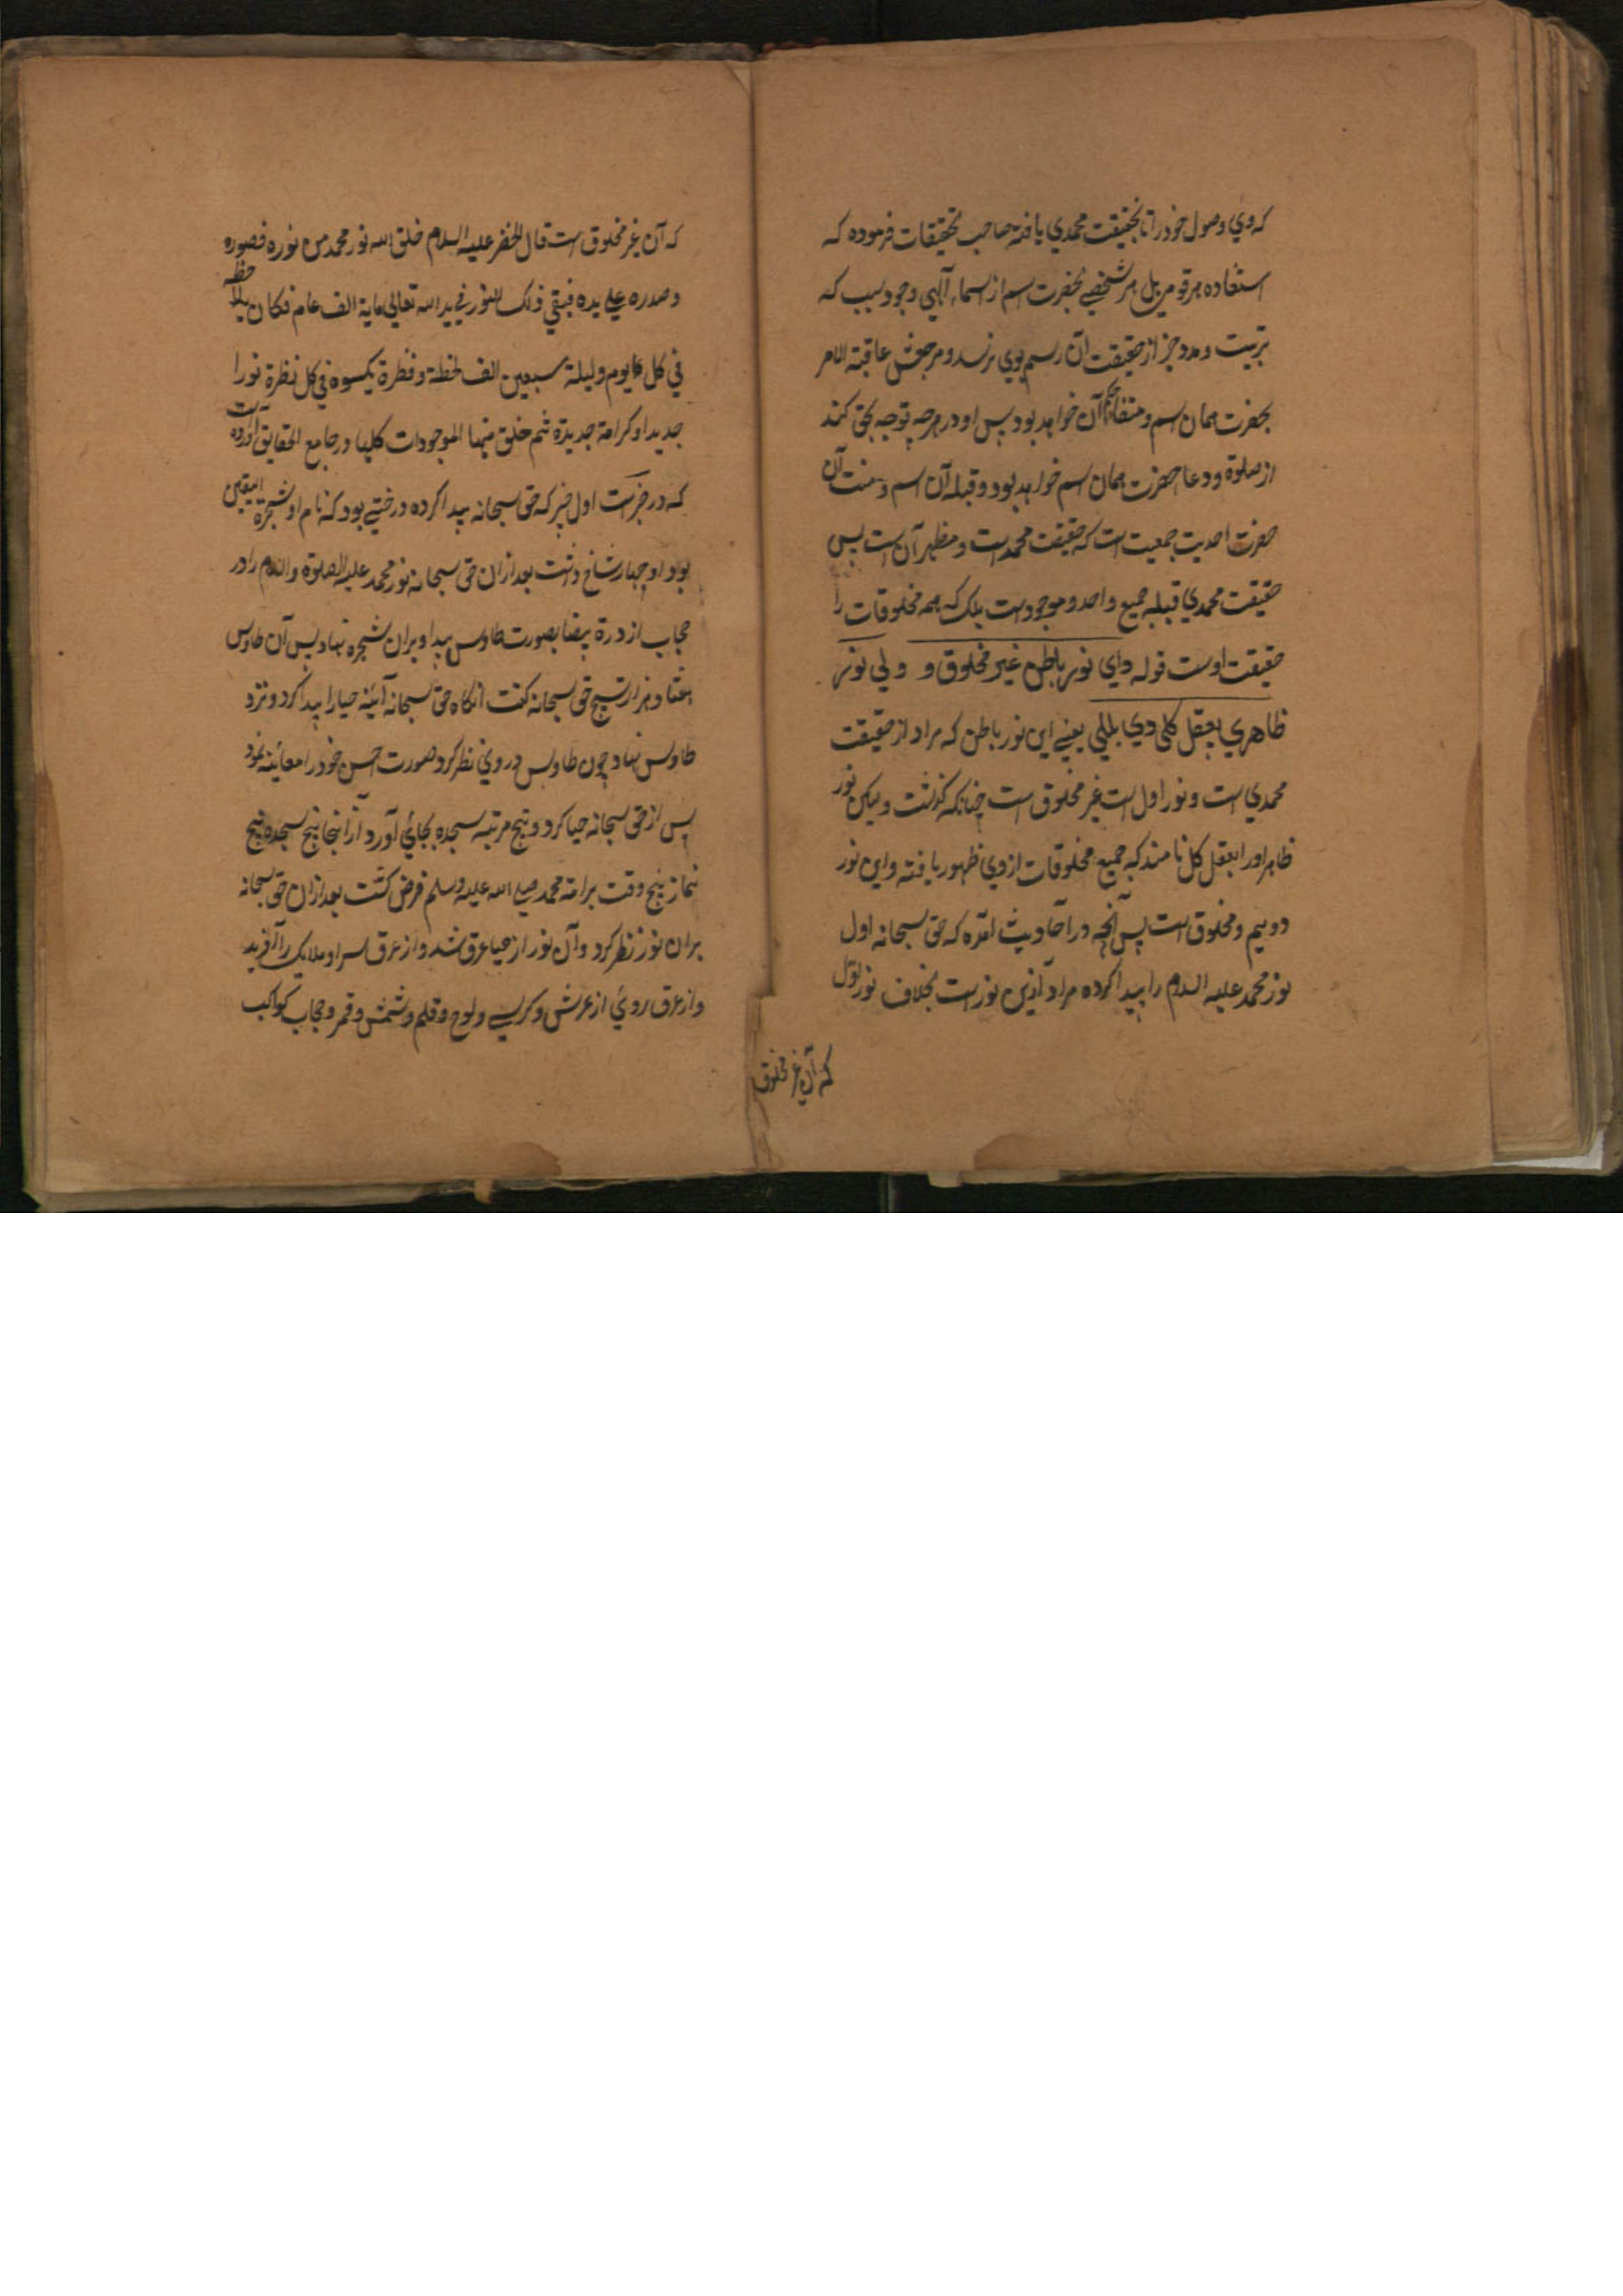 که وي وصول خود را تا بحقیقت محمدي یافته صاحب تحقیقات فرموده که
استفاده هر قوم بل هر شخصی بحضرت اسم از اسماء آلهي وجود سبب که
تربیت و مدد جز از حقیقت آن رسم بوي نرسد و مرجعش عاقبة الامر
بحضرت همان اسم و متفاهم آن خواهد بود پس او در هرچه توجه بحق کند
از صلوة و دعا حضرت همان اسم خواهد بود و قبله آن اسم و منت آن
حضرت احدیت جمعیت است که حقیقت محمد است و مظهر آن است پس
حقیقت محمدي قبله جمیع واحد و موجود است بلک که همه مخلوقات را
حقیقت اوست قوله داي نور باطن غیر مخلوق و ولي نور
ظاهري بعقل کلي دي بللي یعنے این نور باطن که مراد از حقیقت
محمدي است و نور اول است غیر مخلوق است چنانکه کذشت ولیکن نور
ظاهر اورا بعقل کل نامند که جمیع مخلوقات از وي ظهور یافته و این نور
دویم و مخلوق است پس آنچه در احادیث آمده که حق سبحانه اول
نور محمد علیه السلام را پیدا کرده مراد ازین نور است بخلاف نور اول
که آن غیر مخلوق
که آن غیر مخلوق است قال الخضر علیه السلام خلق الله نور محمد من نوره فصوره
وصدره علے یده فبقي ذلک النور في ید الله تعالي مایة الف عام فکان یلاحظه
في کل یوم ولیلة سبعین الف لحظة و نظرة یکسوه في کل نظرة نورا
جدیدا و کرامة جدیدة ثم خلق منها الموجودات کلها و در جامع الحقایق آورده است
که در خبر است اول چیز که حق سبحانه پیدا کرده درختے بود که نام او شجرة الیقین
بود او چهار شاخ داشت بعد ازان حق سبحانه نور محمد علیه الصلوة والسلام را در
حجاب از درة بیضا بصورت طاوس پیدا و بران شجره نهاد پس آن طاوس
هفتاد هزار تسبیح حق سبحانه کفت آنکاه حق سبحانه آئینه حیا را پیدا کرد و نزد
طاوس نهاد چون طاوس در وي نظر کرد صورت حسن خود را معائنه نمود
پس از حق سبحانه حیا کرد و پنج مرتبه سجده بجاي آورد از آنجا پنج سجده پنج
نماز پنج وقت بر امة محمد صلے الله علیه وسلم فرض کشت بعد ازان حق سبحانه
بران نور نظر کرد و آن نور از حیا عرق شد و از عرق سر او ملایک را آفرید
و از عرق روي از عرش و کرسے و لوح و قلم و شمس و قمر و حجاب کواکب